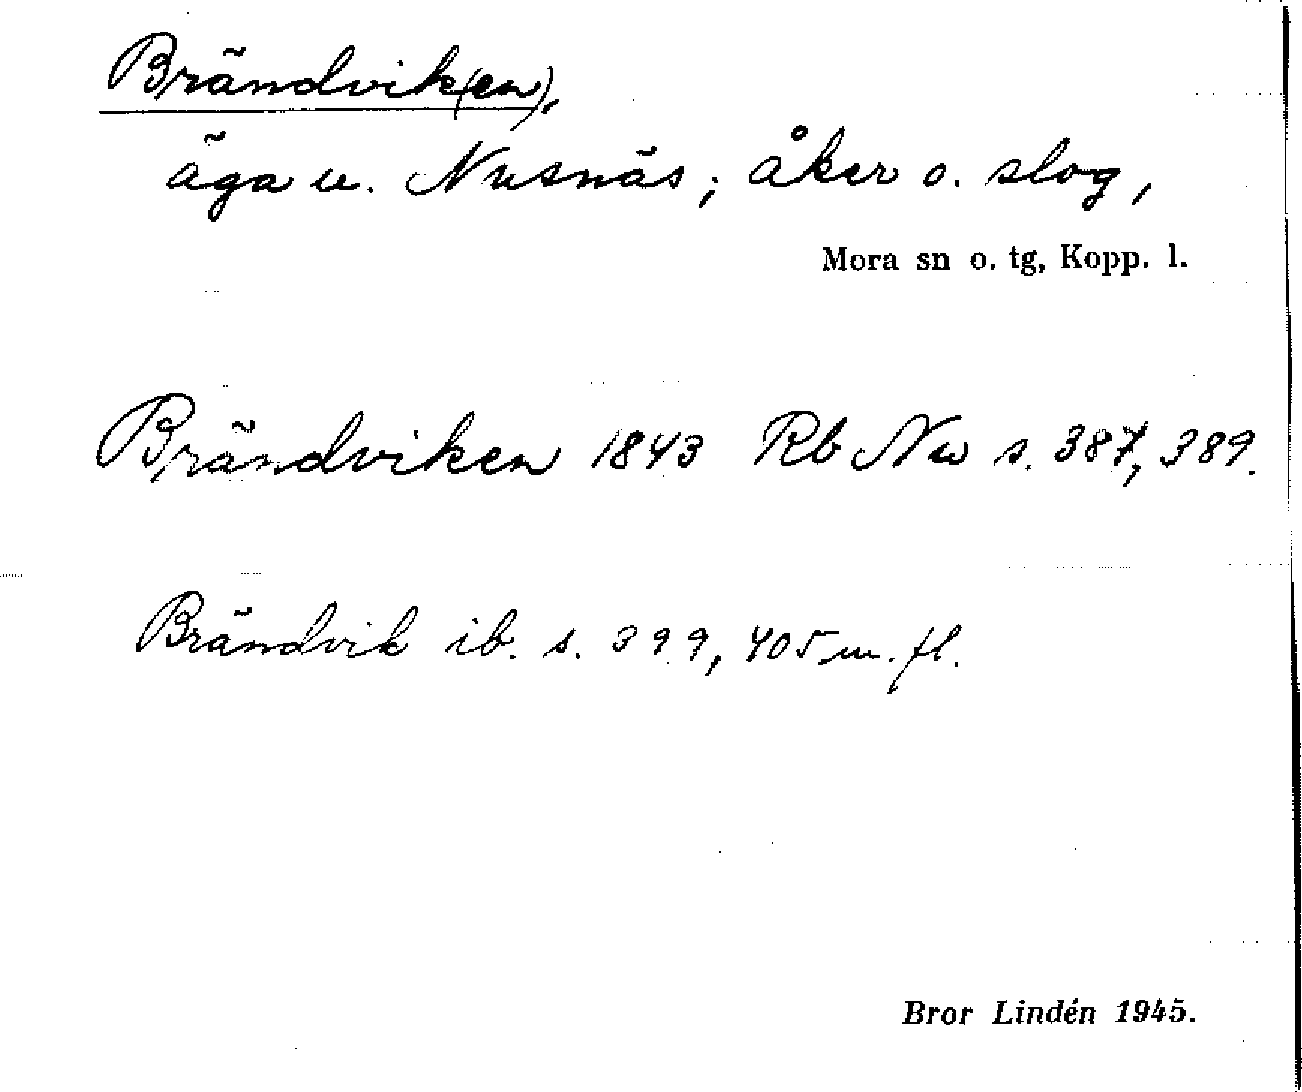 Brändvik(en),
äga u. Nusnäs; åker o. slog,
Mora sn o. tg, Kopp. l.
Brändviken 1843 Rb Nw s. 387, 389.
Brändvik ib. s. 399, 405 m. fl.
Bror Lindén 1945.